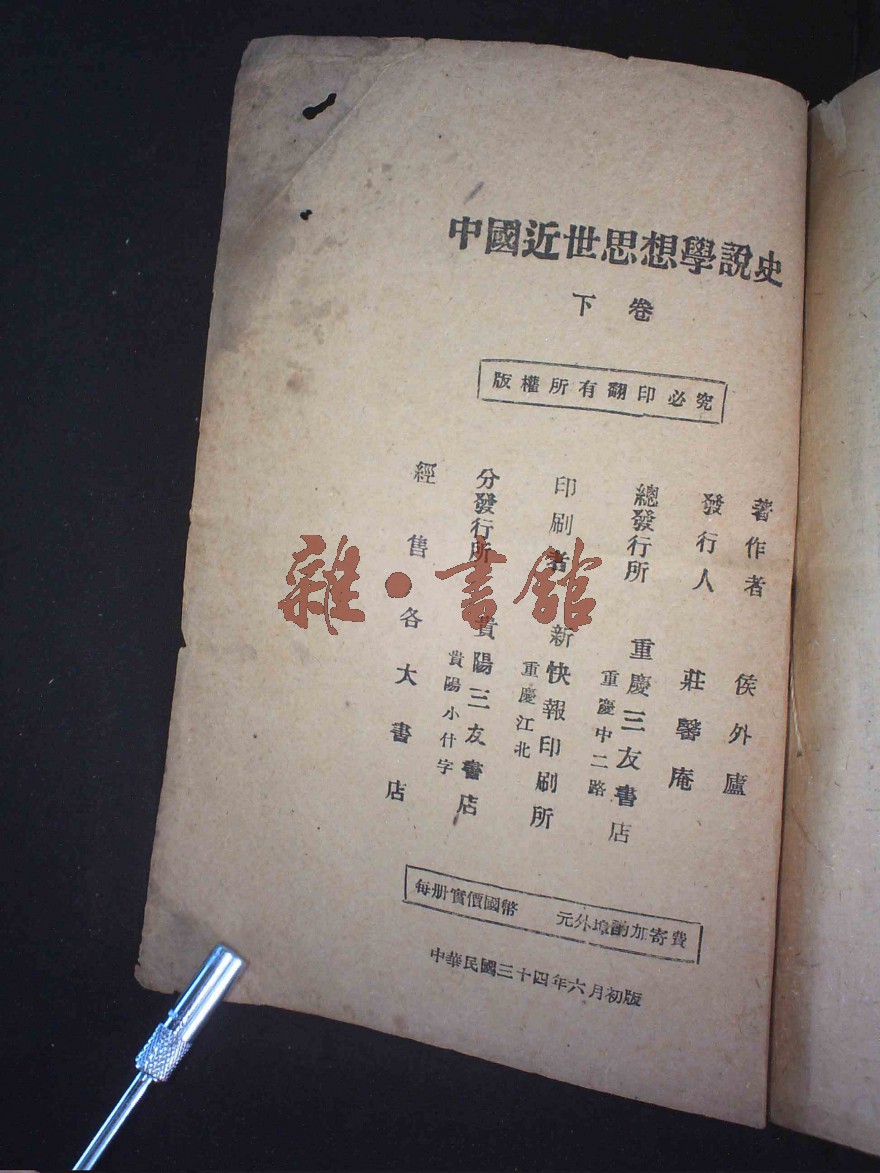 中國近世思想學說史
下卷
版權所有翻印必究
著作者 侯外廬
發行人 莊馨庵
總發行所 重慶三友書店
重慶中二路
印刷者 新快報印刷所
重慶江北
分發行所 貴陽三友書店
貴陽小什字
經售各大書店
每册實價國幣 元外埠酌加寄費
中華民國三十四年六月初版
雜·書館